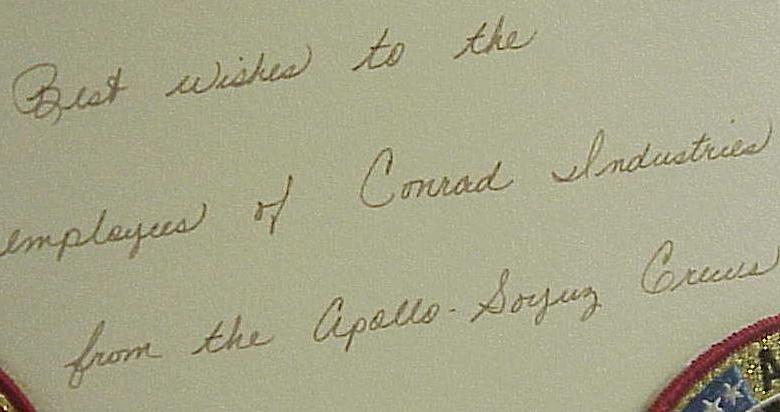 Best wishes to the
employees of Conrad Industries
from the Apollo-Soyuz Crews
A